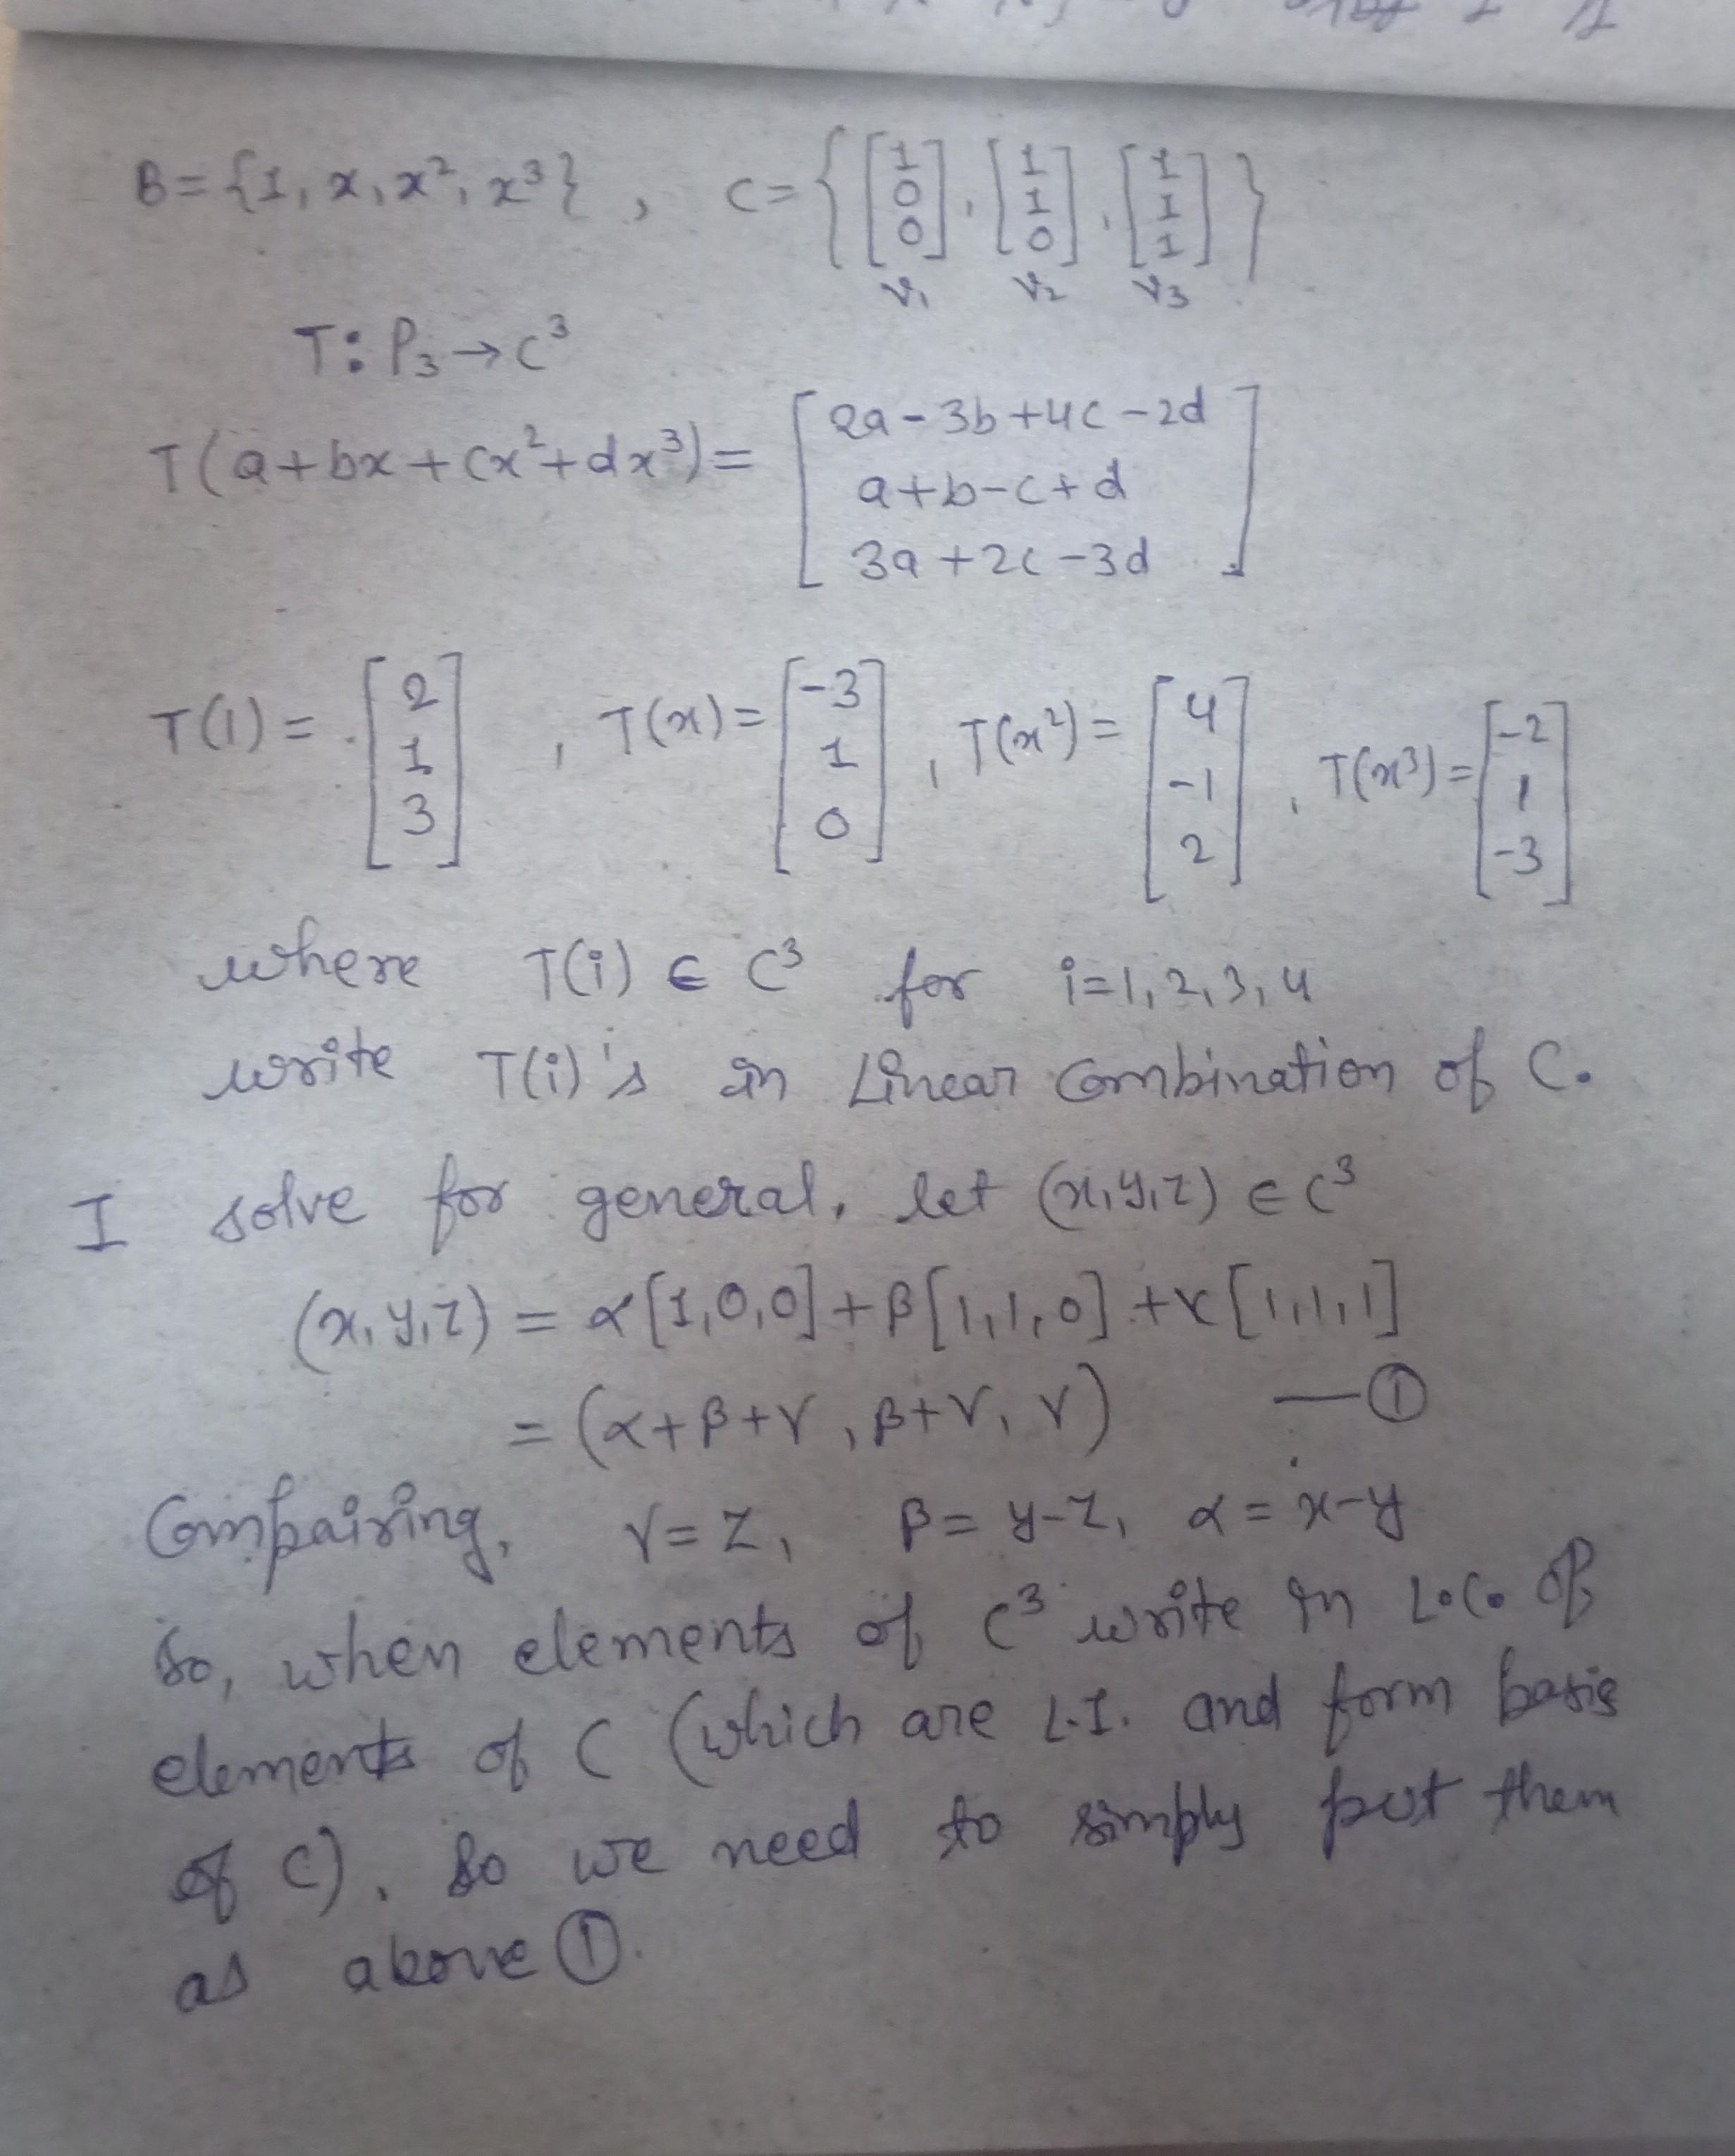 B = {1, x, x², x³} , C = { [1 0 0], [1 1 0], [1 1 1] }
v₁ v₂ v₃
T: P₃ → C³
T(a + bx + cx² + dx³) = [ 2a - 3b + 4c - 2d
a + b - c + d
3a + 2c - 3d ]
T(1) = [2 1 3] , T(x) = [-3 1 0] , T(x²) = [4 -1 2] , T(x³) = [-2 1 -3]
where T(i) ∈ C³ for i=1,2,3,4
write T(i)'s in Linear Combination of C.
I solve for general, let (x,y,z) ∈ C³
(x,y,z) = α[1,0,0] + β[1,1,0] + γ[1,1,1]
= (α+β+γ, β+γ, γ) — ①
Compairing, γ = z, β = y-z, α = x-y
So, when elements of C³ write in L.C. of
elements of C (which are L.I. and form basis
of C). So we need to simply put them
as above ①.